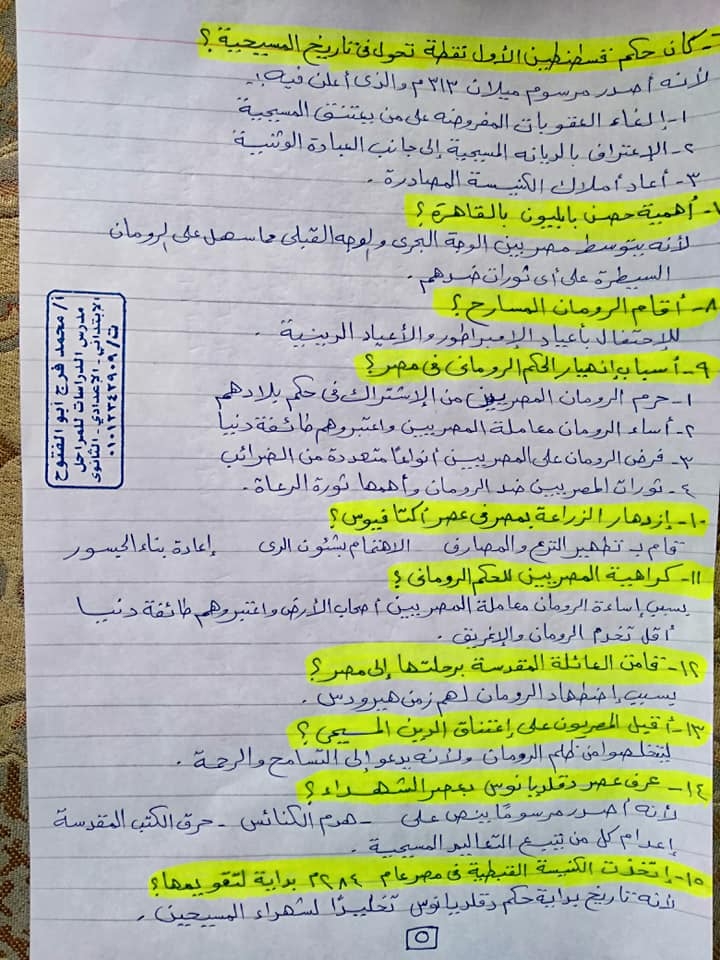 - كان حكم قسطنطين الأول نقطة تحول فى تاريخ المسيحية ؟
لأنه أصدر مرسوم ميلان ٣١٣م والذى أعلن فيه :-
١- إلغاء العقوبات المفروضه على من يعتنق المسيحية
٢- الإعتراف بالديانه المسيحية إلى جانب العبادة الوثنية
٣- أعاد أملاك الكنيسة المصادرة .
٧- أهمية حصن بابليون بالقاهرة ؟
لأنه يتوسط مصر بين الوجة البحرى والوجه القبلى مما سهل على الرومان
السيطرة على أى ثورات ضدهم .
٨- أقام الرومان المسارح ؟
للإحتفال بأعياد الإمبراطور والأعياد الدينية .
٩- أسباب إنهيار الحكم الرومانى فى مصر ؟
١- حرم الرومان المصريين من الإشتراك فى حكم بلادهم
٢- أساء الرومان معاملة المصريين واعتبروهم طائفة دنيا
٣- فرض الرومان على المصريين أنواعًا متعددة من الضرائب
٤- ثورات المصريين ضد الرومان وأهمها ثورة الرعاة .
١٠- إزدهار الزراعة بمصر فى عصر أكتافيوس ؟
قام بـ تطهير الترع والمصارف الاهتمام بشئون الرى إعادة بناء الجسور
١١- كراهية المصريين للحكم الرومانى ؟
بسبب إساءة الرومان معاملة المصريين أصحاب الأرض واعتبروهم طائفة دنيا
أقل تخدم الرومان والإغريق .
١٢- قامت العائلة المقدسة برحلتها إلى مصر ؟
بسبب إضطهاد الرومان لهم زمن هيرودس .
١٣- أقبل المصريون على إعتناق الدين المسيحى ؟
ليتخلصوا من ظلم الرومان ولأنه يدعو إلى التسامح والرحمة .
١٤- عرف عصر دقلديانوس بعصر الشهداء ؟
لأنه أصدر مرسومًا ينص على - هدم الكنائس - حرق الكتب المقدسة
إعدام كل من يتبع التعاليم المسيحية .
١٥- إتخذت الكنيسة القبطية فى مصر عام ٢٨٤م بداية لتقويمها ؟
لأنه تاريخ بداية حكم دقلديانوس تخليدًا لشهداء المسيحيين .
٥
أ/ محمد فرج ابو الفتوح
مدرس الدراسات للمراحل
الإبتدائي - الإعدادي - الثانوى
ت/ ٠١٠١٢٣٤٢٩٠٩